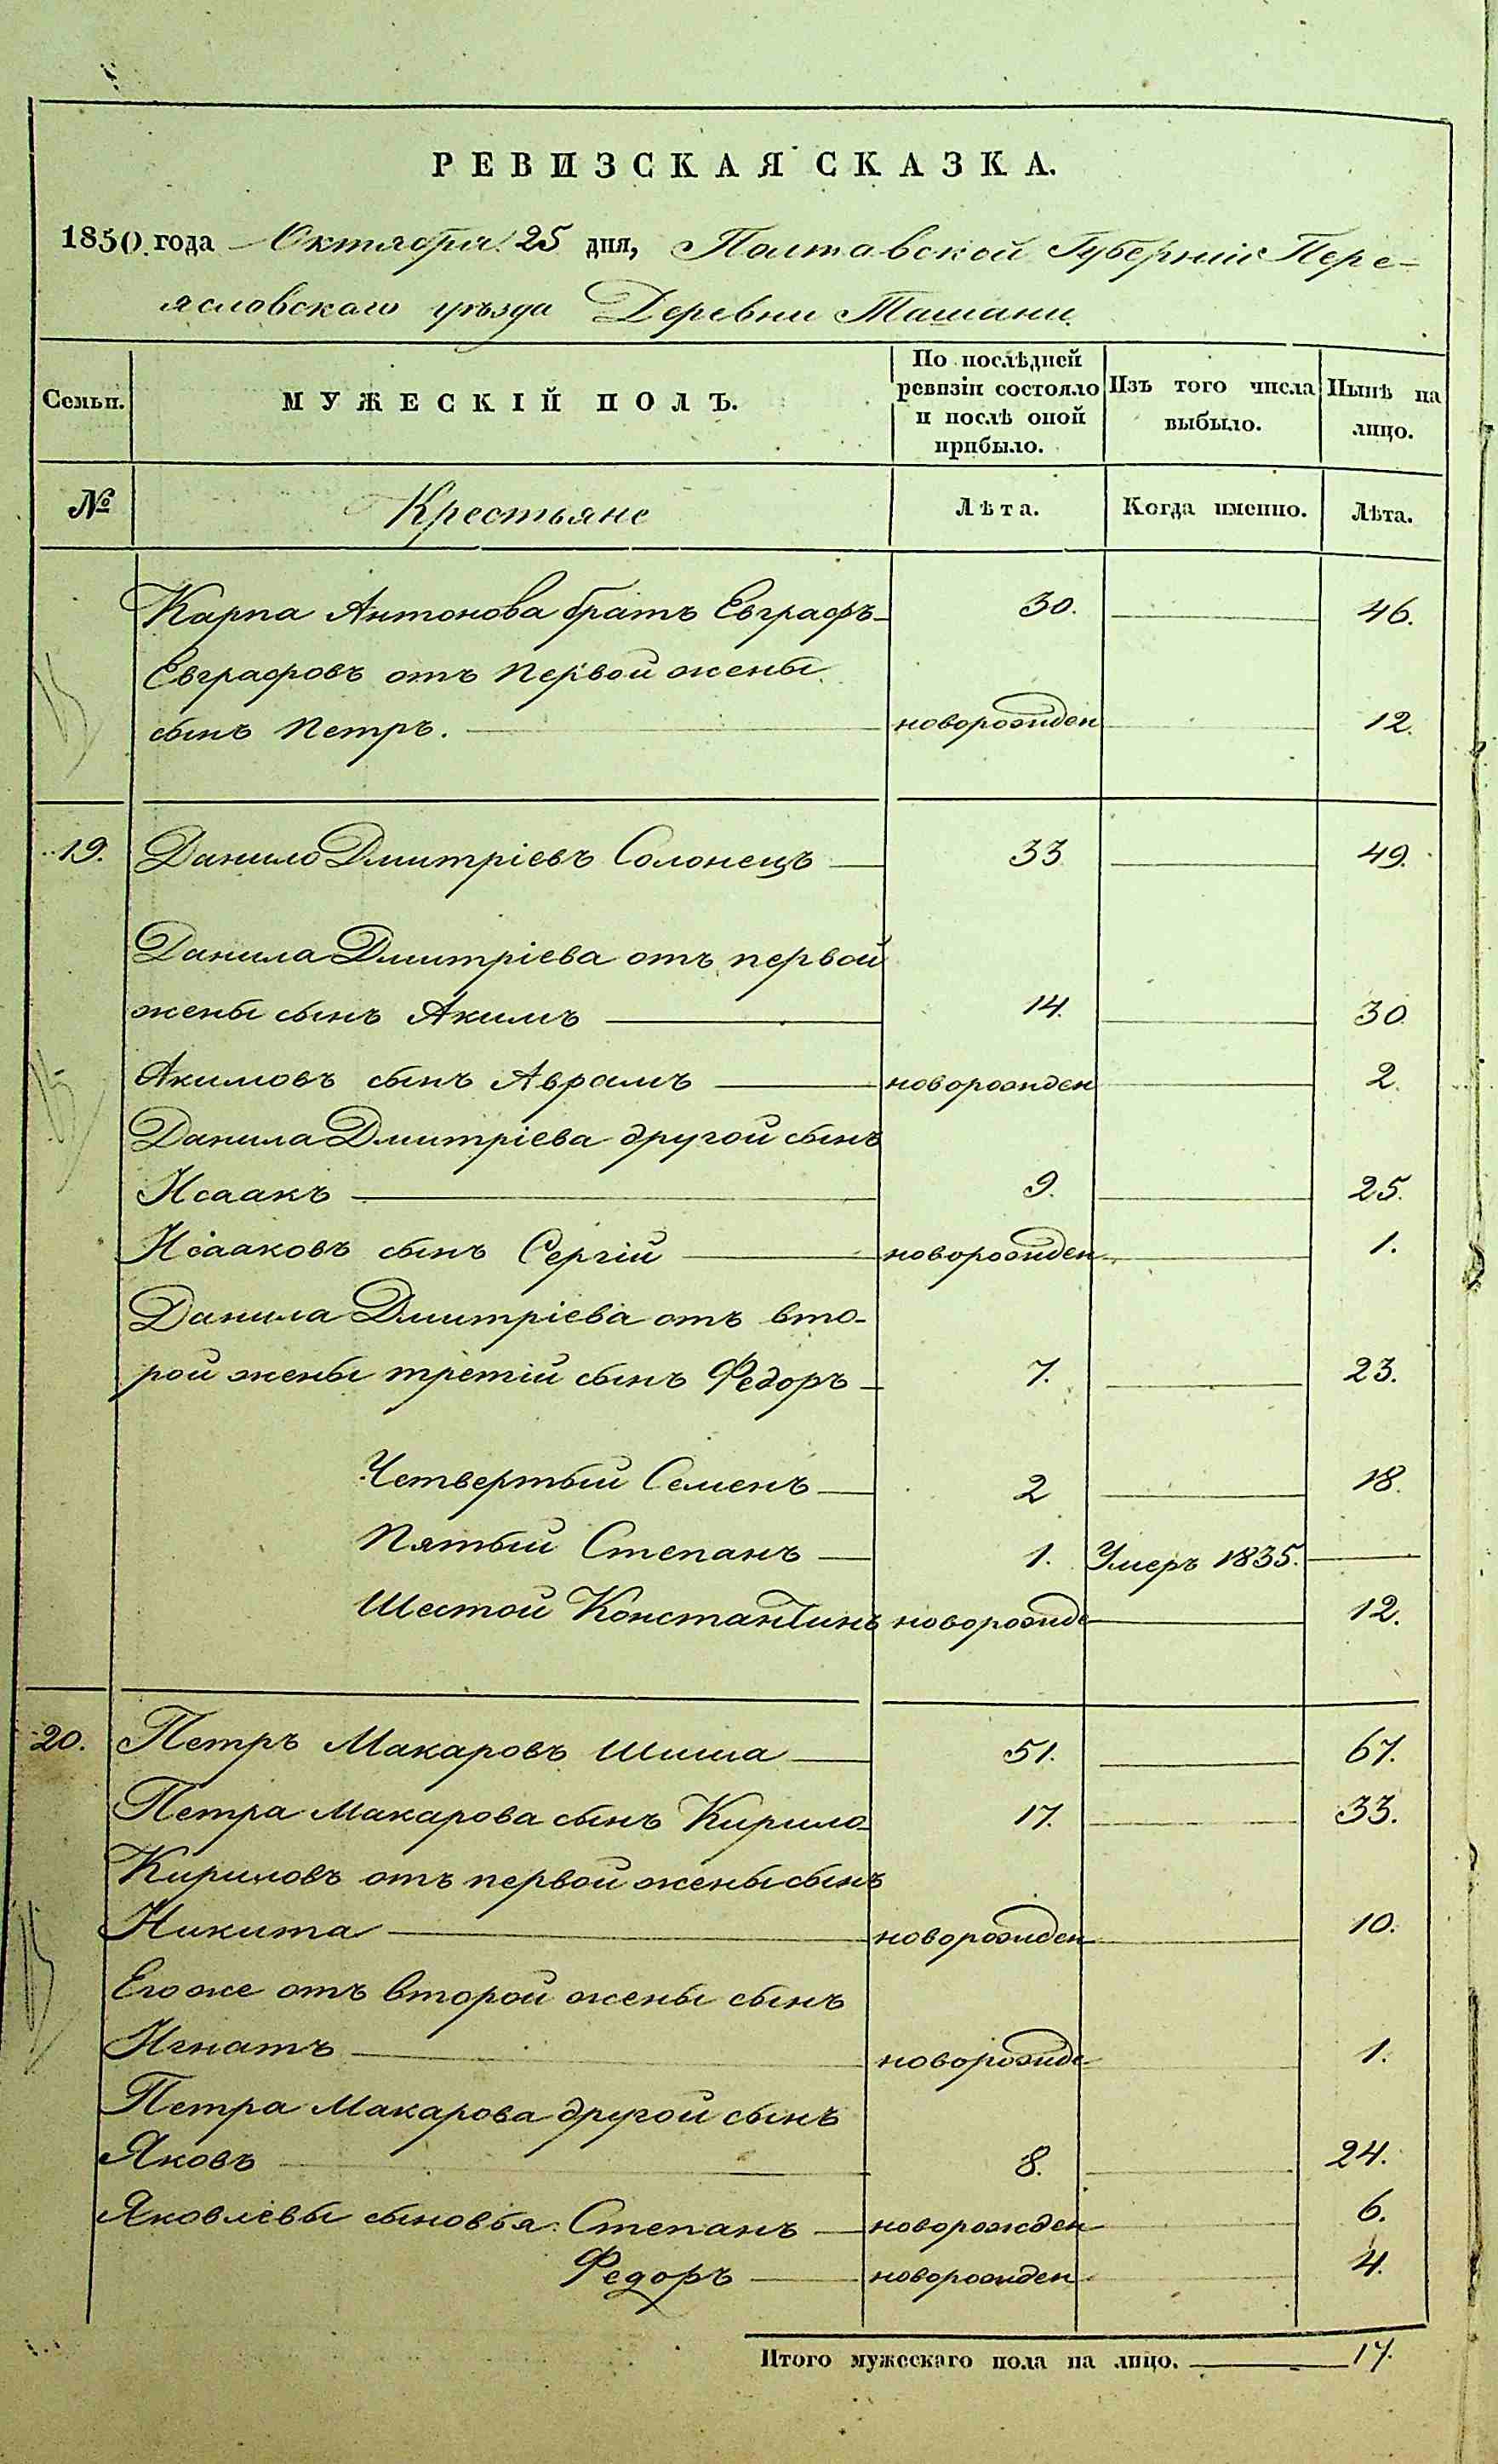 РЕВИЗСКАЯ СКАЗКА.
1850. года Октября 25 дня, Полтавской Губерніи Пере-
яславскаго уѣзда Деревни Ташани.
Семьи. МУЖЕСКІЙ ПОЛЪ. По послѣдней ревизіи состояло и послѣ оной прибыло. Изъ того числа выбыло. Нынѣ на лицо.
№ Крестьяне Лѣта. Когда именно. Лѣта.
Карпа Антонова братъ Евграфъ 30. 46.
Евграфовъ отъ первой жены
сынъ Петръ. новорожден 12.
19. Данило Дмитріевъ Солонецъ 33 49.
Данила Дмитріева отъ первой
жены сынъ Акимъ 14. 30.
Акимовъ сынъ Аврамъ новорожден 2.
Данила Дмитріева другой сынъ
Исаакъ 9. 25.
Исааковъ сынъ Сергій новорожден 1.
Данила Дмитріева отъ вто-
рой жены третій сынъ Федоръ 7. 23.
Четвертый Семенъ 2 18.
Пятый Степанъ 1. Умеръ 1835.
Шестой Константинъ новорожде 12.
20. Петръ Макаровъ Шиша 51. 67.
Петра Макарова сынъ Кирило 17. 33.
Кириловъ отъ первой жены сынъ
Никита новорожден 10.
Егоже отъ второй жены сынъ
Игнатъ новорожде 1.
Петра Макарова другой сынъ
Яковъ 8. 24.
Яковлевы сыновья: Степанъ новорожден 6.
Федоръ новорожден 4.
Итого мужескаго пола на лицо. 17.